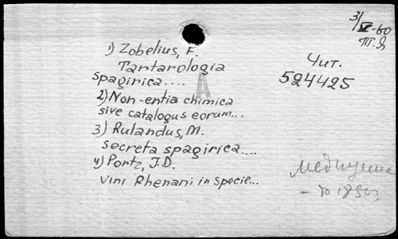 3/V-60
т. Я
1) Zobelius, F.
Tantarologia
spagirica....
2) Non-entia chimica
sive catalogus eorum...
3) Rulandus, M.
secreta spagirica....
4) Portz, J.D.
vini Rhenani in specie...
Чит.
524425
А
Медицина
- до 1850 г.